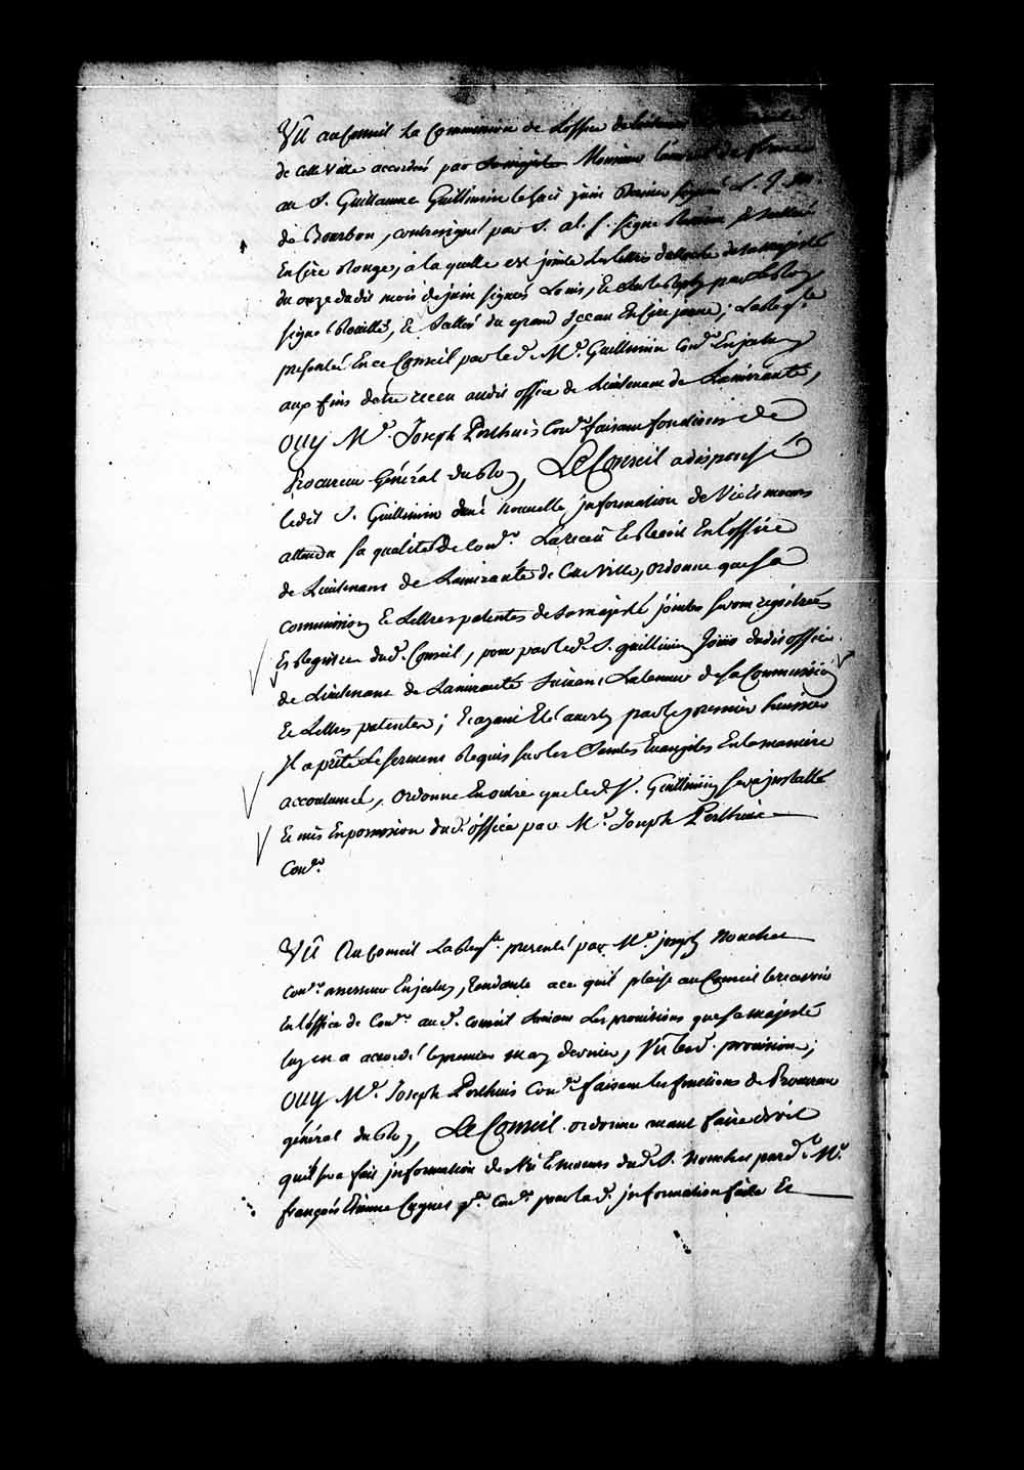 Vû au Conseil La Commission de Loffice de Lieutenant
de Cette Ville accordée par Sa majesté Monsieur Lamiral de france
au S. Guillaume Guillimin le six juin dernier signée L. J. M.
de Bourbon, contresigné par S. A. S. signé et scellée
En Cire Rouge, à la quelle est jointe Les lettres dattache de sa majesté
du onze dudit mois de juin signés Louis, Et plus bas par Le Roy
signé Roüillé, Et Scellés du grand sceau En Cire jaune; La Reqte
presentée En ce Conseil par led. Me. Guillimin Conr. En jceluy
aux fins detre receu audit office de Lieutenant de Lamirauté,
OUY Me. Joseph Perthuis Conr. faisant fonctions de
Procureur Général du Roy, Le Conseil a dispensé
ledit S. Guillimin dune Nouvelle jnformation de Vie et moeurs
attendu sa qualité de Conr. La receu et Reçoit En Loffice
de Lieutenant de Lamirauté de Cette Ville, ordonne que sa
commission Et Lettres patentes de sa majesté jointes seront registrées
Es Registres dud. Conseil, pour par led. S. guillimin Joüir dudit office
de Lieutenant de Lamirauté Suivant La teneur de sa Commission
Et Lettres patentes; Et ayant Eté averty par le premier huissier
Il a prêté Le serment Requis sur les Saintes Evangiles En la manière
accoutumée, ordonne En outre que led. S. Guillimin sera jnstallé
Et mis En possession dud. office par Me. Joseph Perthuis
Conr.
VÛ Au Conseil La Reqte. presenté par Me. joseph Nouchet
Conr. assesseur En jceluy, Tendante a ce quil plaise au Conseil le recevoir
En Loffice de Conr. aud. conseil Suivant Les provisions que sa majesté
luy en a accordé le premier may dernier, Vû lesd. provisions;
OUY Me. Joseph Perthuis Conr. faisant les fonctions de Procureur
général du Roy, Le Conseil ordonne avant faire droit
quil sera fait jnformation de Vie et moeurs dud. S. Nouchet pardt. Me.
françois Etienne Cugnet pr. Conr. pour lad. jnformation faite Et